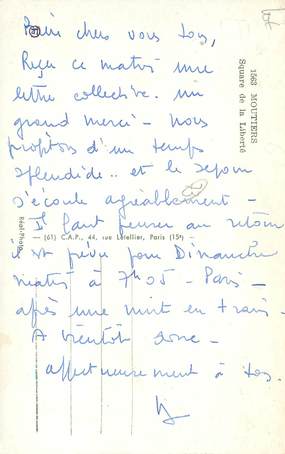 Bien chers vous tous,
Reçu ce matin une
lettre collective. un
grand merci - nous
profitons d'un temps
splendide.. et le séjour
s'écoule agréablement -
Il faut penser au retour
il est prévu pour Dimanche
matin à 7h05 - Paris -
après une nuit en train -
A bientôt donc -
affectueusement à tous.
1563 MOUTIERS
Square de la Liberté
Réal-Photo
(61) C.A.P., 44, rue Letellier, Paris (15e)